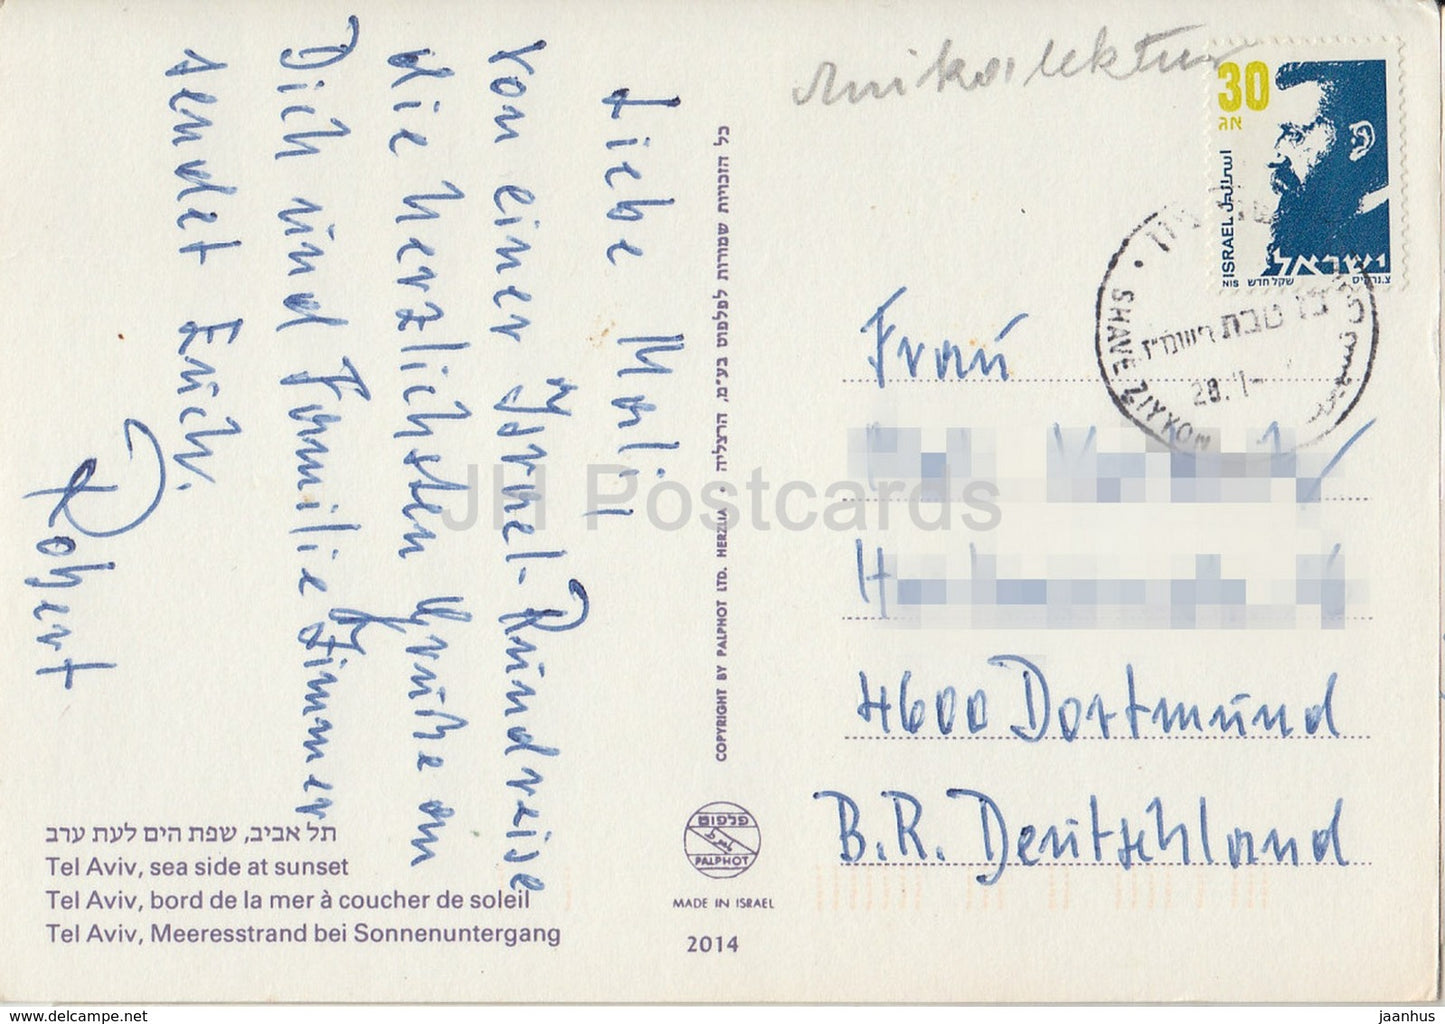 Liebe Marlis,
von einer Israel-Rundreise
die herzlichsten Grüße an
Dich und Familie Zimmer
sendet Euch.
Robert
תל אביב, שפת הים לעת ערב
Tel Aviv, sea side at sunset
Tel Aviv, bord de la mer à coucher de soleil
Tel Aviv, Meeresstrand bei Sonnenuntergang
כל הזכויות שמורות לפלפוט בע"מ, הרצליה • COPYRIGHT BY PALPHOT LTD. HERZLIA
פלפוט
PALPHOT
MADE IN ISRAEL
2014
30
אג
ISRAEL اسرائيل
ישראל
NIS שקל חדש
SHAVE ZIYYON
טבת תשמ"ז
28.1-
Frau
4600 Dortmund
B.R. Deutschland
JH Postcards
www.ansichtskartenmarkt-shop.net